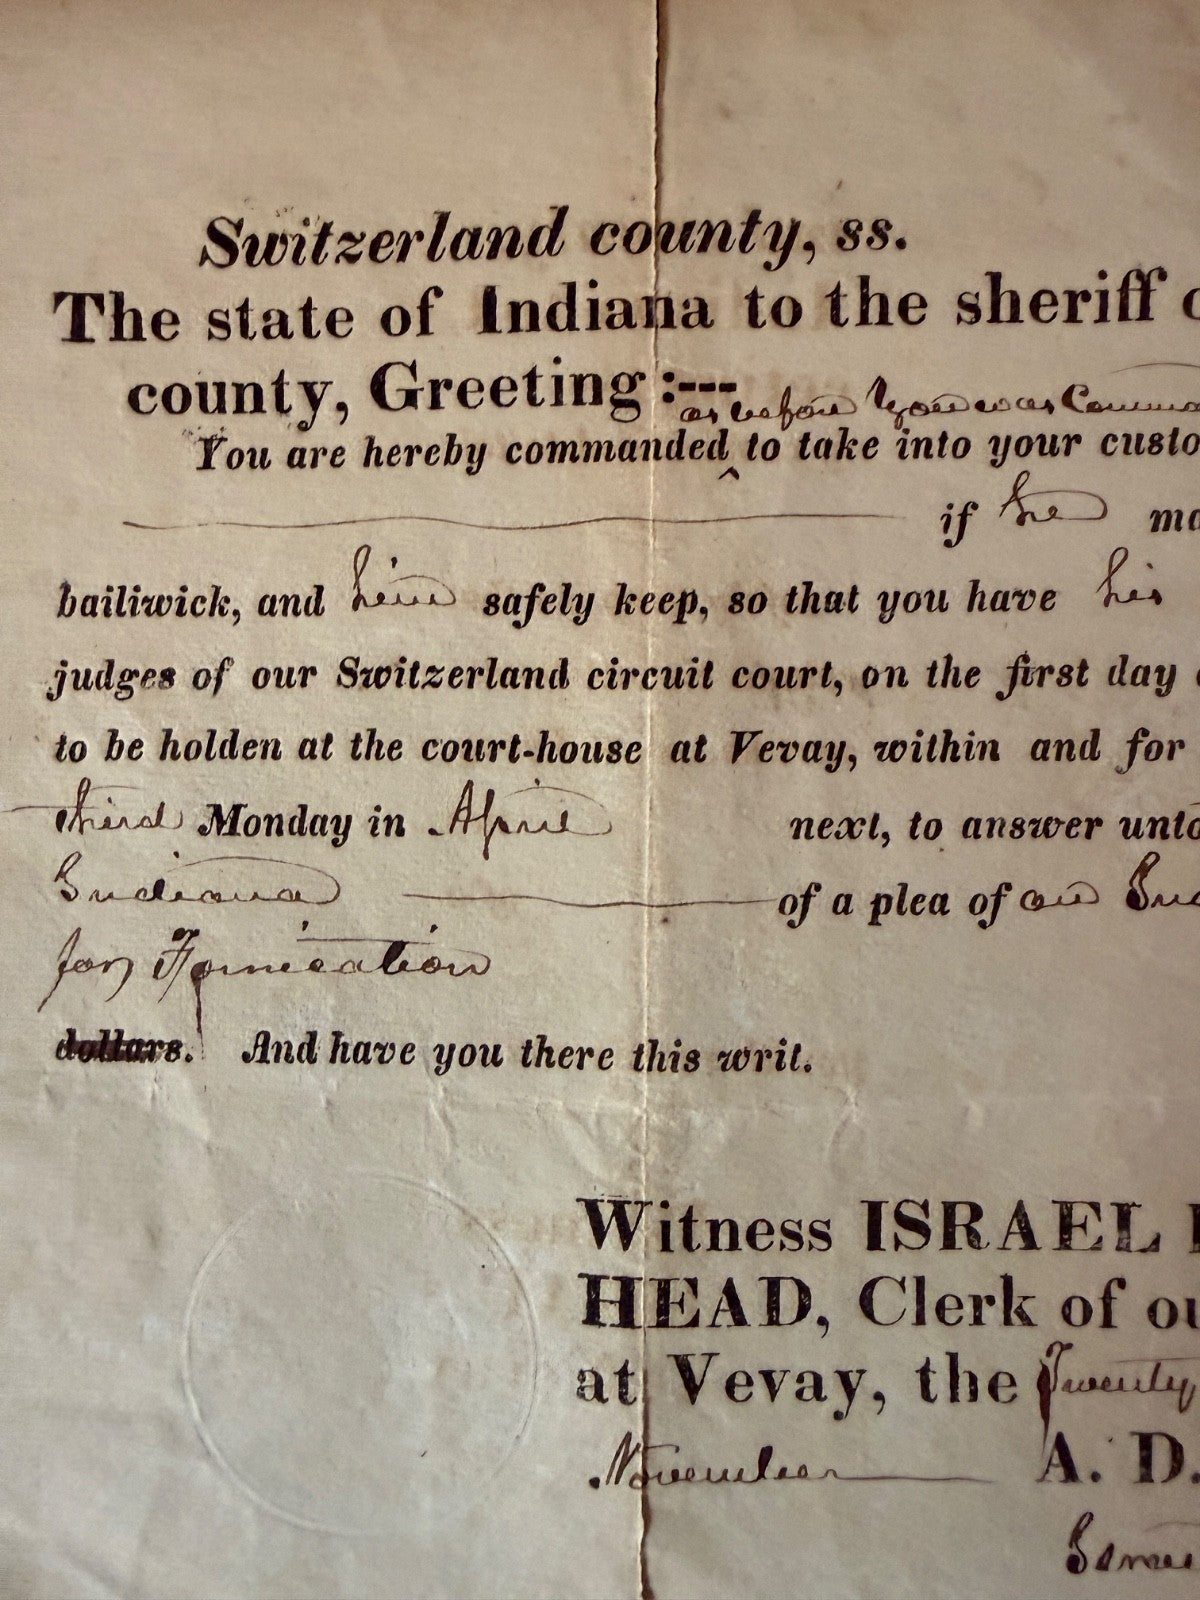 Switzerland county, ss.
The state of Indiana to the sheriff o
county, Greeting :---
as before you was Comma
You are hereby commanded ‸ to take into your custo
if he ma
bailiwick, and him safely keep, so that you have his
judges of our Switzerland circuit court, on the first day o
to be holden at the court-house at Vevay, within and for
third Monday in April next, to answer unto
Indiana of a plea of an Ind
for Fornication
dollars. And have you there this writ.
Witness ISRAEL
HEAD, Clerk of ou
at Vevay, the Twenty
November A. D.